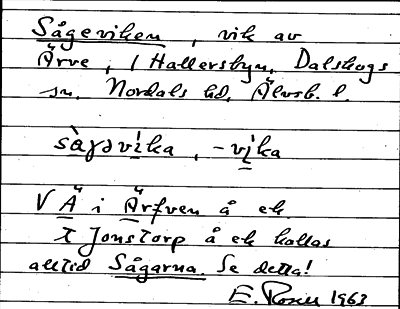 Sågeviken, vik av
Ärve, i Hallersbyn, Dalskogs
sn, Nordals hd, Älvsb. l.
sàɡəvi̱ka, -vi̱ka
V Ä i Ärfven å ek.
t Jonstorp å ek kallas
alltid Sågarna. Se detta!
E. Rosell 1963